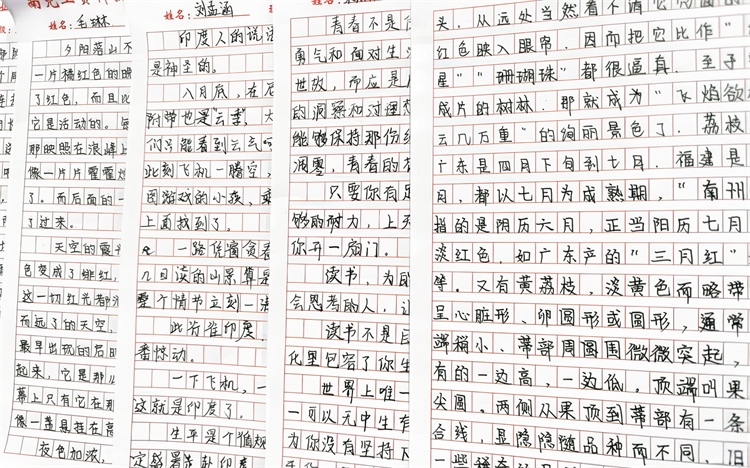 姓名：毛琳
夕阳落山不
一片橘红色的
了红色，而且
它是活动的。每
那映照在浪峰上
像一片片霍霍
了。而后面的一
了过来。
天空的霞
色变成了绯红，
这一切红光都
而远了的天空，
最早出现的启明
起来，它是那么
幕上只有它在那
像一盏悬挂在高
夜色加浓，
姓名：刘孟涵
印度人的说法
是神圣的。
八月底，在
附带也是"云季"，
们只能看到云气
此刻飞机一腾空，
团游戏的小孩，
上面找到了。
一路凭窗贪看
几日读的山景算是
整个情节立刻一
此为谁印度，
番惊动。
一下飞机，一
这就是印度了。
生平是个
定感是
青春不是
勇气和面对生
世故，而应是
的洞察和对理想
能够保持那份
凋零，青春的
只要你有足
够的耐力，上天
你开一扇门。
读书，为
会思考的人，让
读书不是
化里包容了你生
世界上唯一
一可以无中生有
为你没有坚持下
头，从远处当然看不清它
红色映入眼帘，因而把它比作"
星""珊瑚珠"都很逼真，至于
成片的树林，那就成为"飞焰欲
云几万重"的绚丽景色了，荔枝
广东是四月下旬到七月，福建是
月，都以七月为成熟期，"南州
指的是阴历六月，正当阳历七月
淡红色，如广东产的"三月红"
等。又有黄荔枝，淡黄色而略带
呈心脏形、卵圆形或圆形，通常
端稍小、蒂部周围微微突起，
有的一边高，一边低。顶端叫果
尖圆。两侧从果顶到蒂部有一条
合线，显隐隐随品种而不同，旧